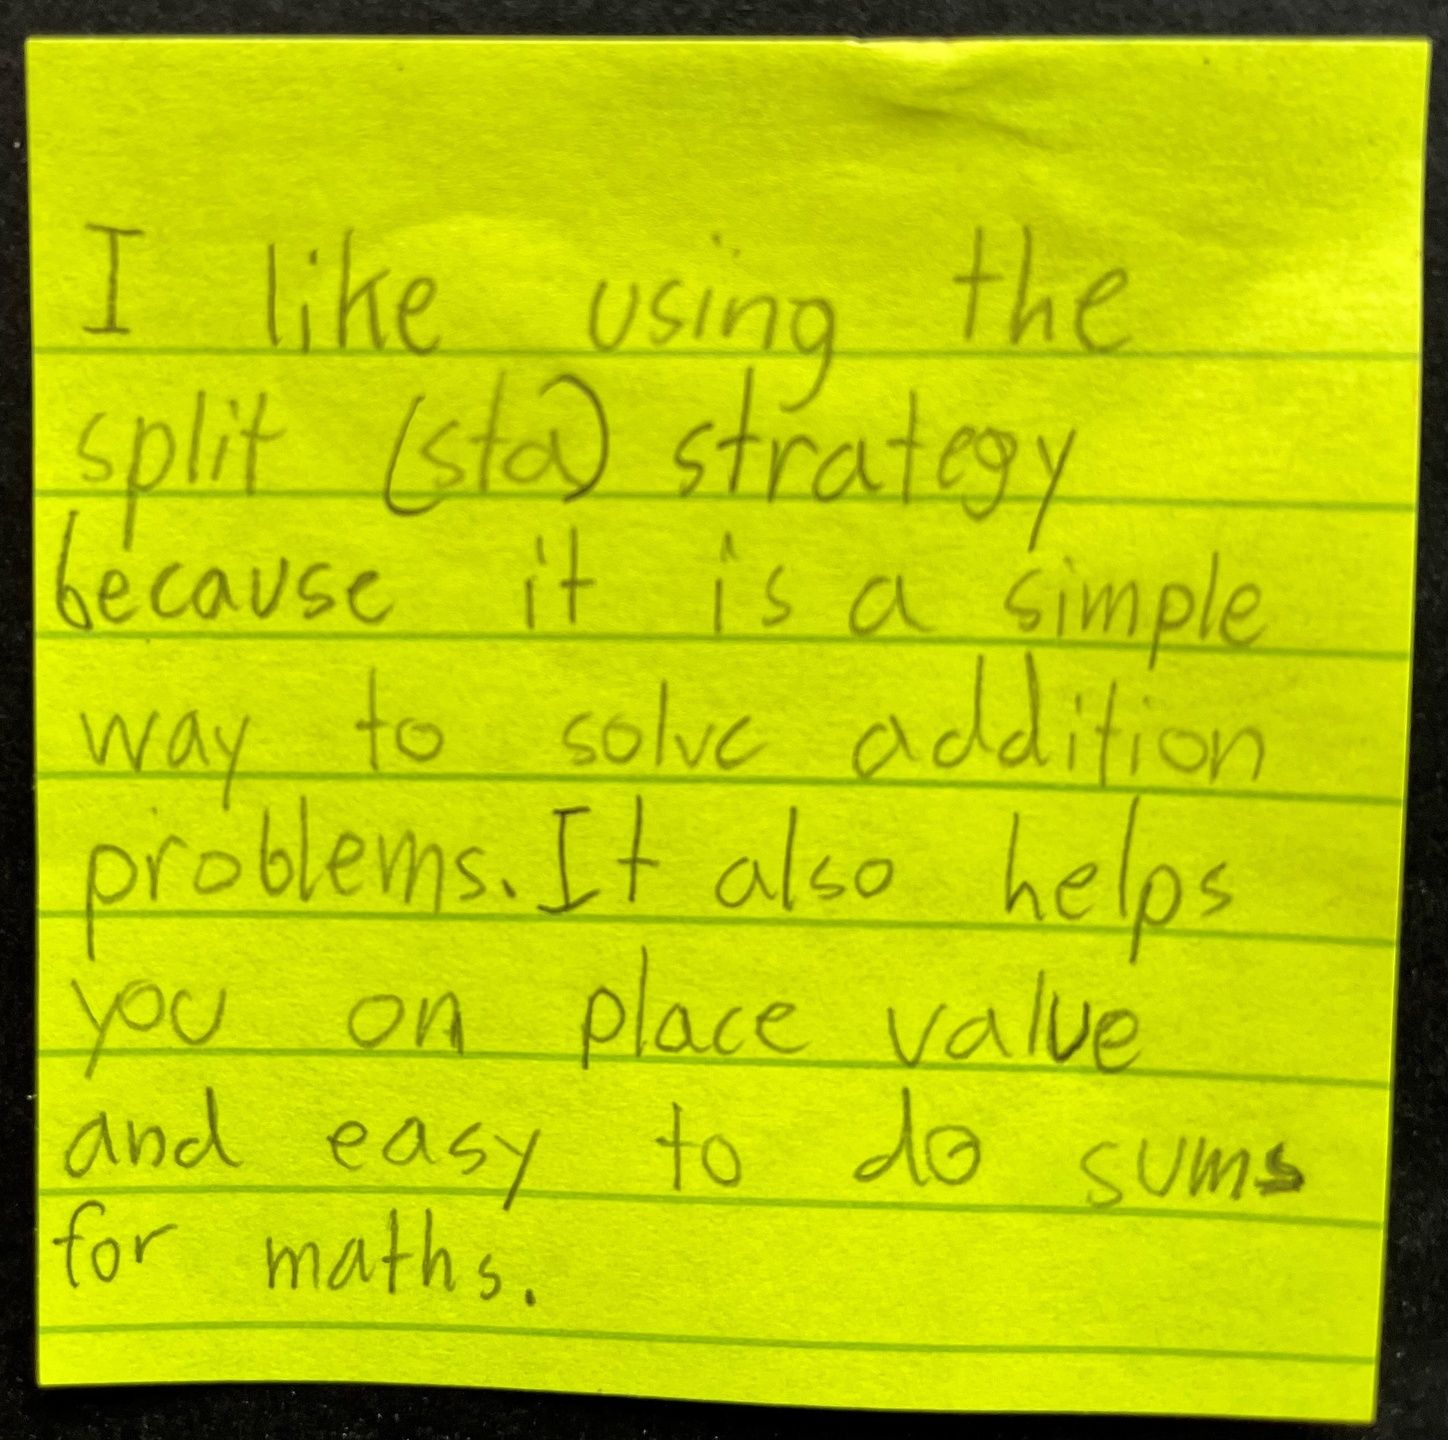 I like using the
split (sta) strategy
because it is a simple
way to solve addition
problems. It also helps
you on place value
and easy to do sums
for maths.